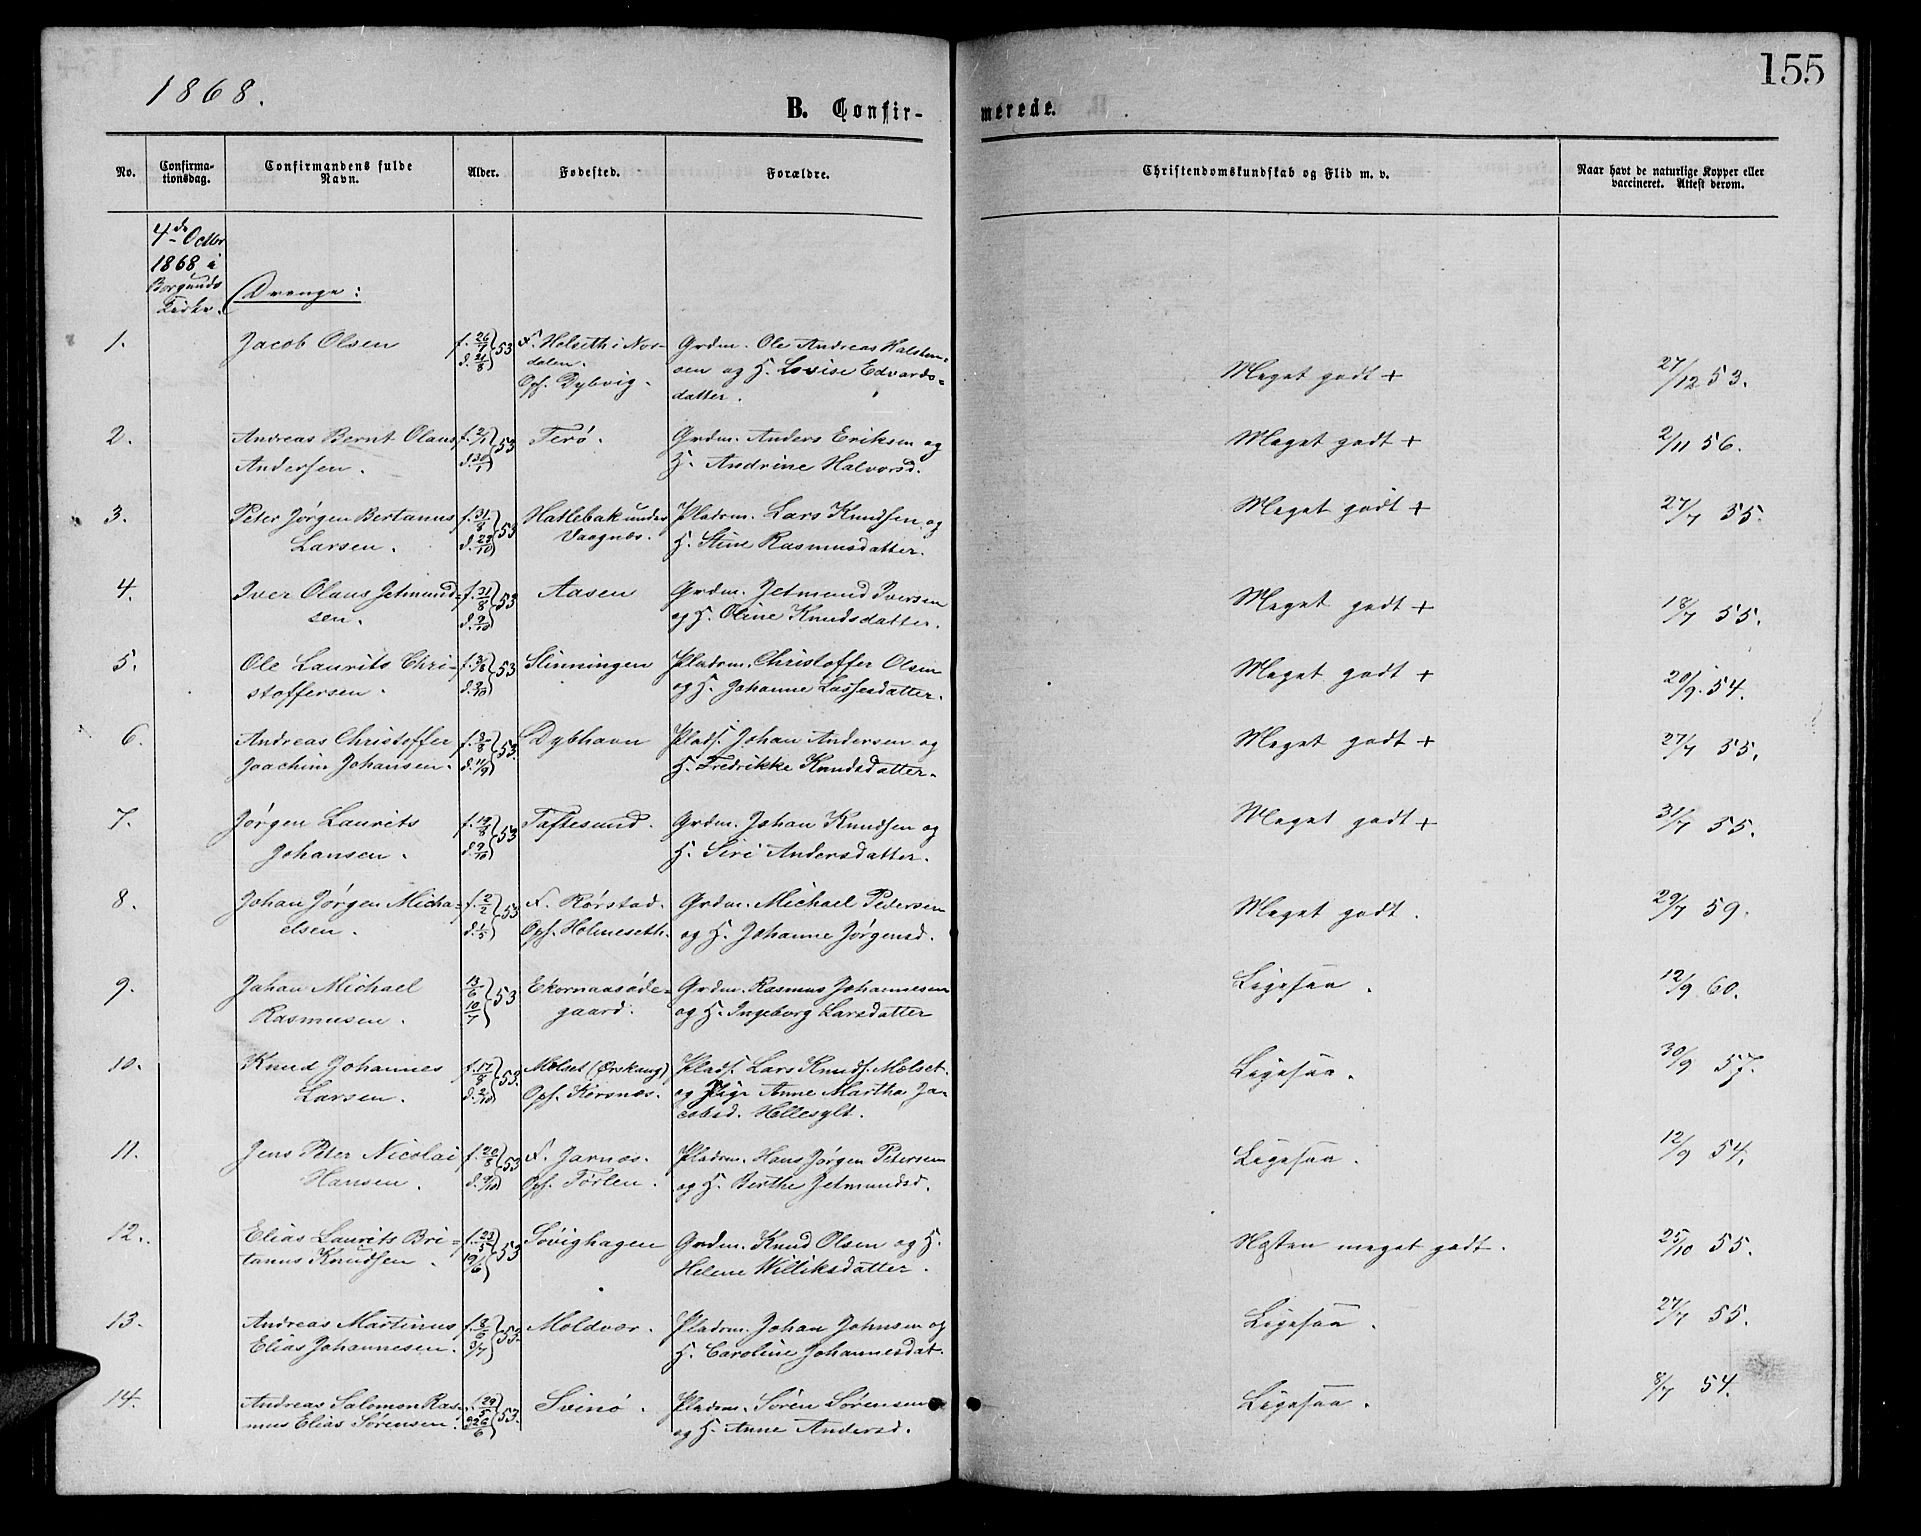 155
1868.
B. Confir-
merede.
No.
Confirma-
tionsdag.
Confirmandens fulde
Navn.
Alder.
Fødested.
Forældre.
Christendomskundskab og Flid m. v.
Naar havt de naturlige Kopper eller
vaccineret. Attest derom.
4de Octbr
1868 i
Borgunds
Kirke.
Drenge:
1. Jacob Olsen f. 26/7 d. 21/8 } 53 F. Holseth i Nor-
dalen.
Opf. Dybvig.
Grdm. Ole Andreas Halsten-
sen og H. Lovise Edvards-
datter.
Meget godt + 27/12 53.
2. Andreas Bernt Olaus
Andersen.
f. 2/1 d. 30/1 } 53 Terø.
Grdm. Anders Eriksen og
H. Andrine Halvorsd.
Meget godt + 2/11 56.
3. Peter Jørgen Bertanus
Larsen.
f. 31/8 d. 23/10 } 53 Hatlebak under
Vaagnæs.
Pladsm. Lars Knudsen og
H. Stine Rasmusdatter.
Meget godt + 27/7 55.
4. Iver Olaus Jetmund-
sen.
f. 31/8 d. 9/10 } 53 Aasen
Grdm. Jetmund Iversen
og H. Oline Knudsdatter.
Meget godt + 18/7 55.
5. Ole Laurits Chri-
stoffersen.
f. 3/8 d. 9/10 } 53 Slinningen
Pladsm. Christoffer Olsen
og H. Johanne Lassesdatter.
Meget godt + 20/9 54.
6. Andreas Christoffer
Joachim Johansen.
f. 3/8 d. 11/9 } 53. Dybhavn
Plads. Johan Andersen og
H. Fredrikke Knudsdatter.
Meget godt + 27/7 55.
7. Jørgen Laurits
Johansen.
f. 19/8 d. 9/10 } 53 Taftesund.
Grdm. Johan Knudsen og
H. Siri Andersdatter.
Meget godt + 31/7 55.
8. Johan Jørgen Micha-
elsen.
f. 2/2 d. 1/5 } 53 F. Rørstad.
Opf. Holmeseth.
Grdm. Michael Pedersen
og H. Johanne Jørgensd.
Meget godt. 29/7 59.
9. Johan Michael
Rasmusen.
13/6 10/7 } 53 Ekornaasøde-
gaard.
Grdm. Rasmus Johannesen
og H. Ingeborg Larsdatter
Ligesaa. 12/9 60.
10. Knud Johannes
Larsen.
f. 17/8 d. 2/10 } 53. Molset (Ørskaug)
Opf. Korsnæs.
Plads. Lars Knuds. Molset
og Pige Anne Martha Ja-
cobsd. Hellesylt.
Ligesaa. 30/9 57.
11. Jens Peter Nicolai
Hansen.
f. 20/8 d. 9/10 } 53 F. Jarnæs.
Opf. Tørlen.
Pladsm. Hans Jørgen Petersen
og H. Berthe Jetmundsd.
Ligesaa. 12/9 54.
12. Elias Laurits Bri-
tanus Knudsen.
f. 23/5 19/6 } 53 Søvighagen
Grdm. Knud Olsen og H.
Helene Williksdatter.
Næsten meget godt. 25/10 55.
13. Andreas Martinus
Elias Johannesen.
f. 8/6 3/7 } 53. Moldvær.
Pladsm. Johan Johnsen og
H. Caroline Johannesdat.
Ligesaa. 27/7 55.
14. Andreas Salomon Ras-
mus Elias Sørensen.
f. 29/5 26/6 } 53. Svinø.
Pladsm. Søren Sørensen
og H. Anne Andersd.
Ligesaa. 8/7 54.